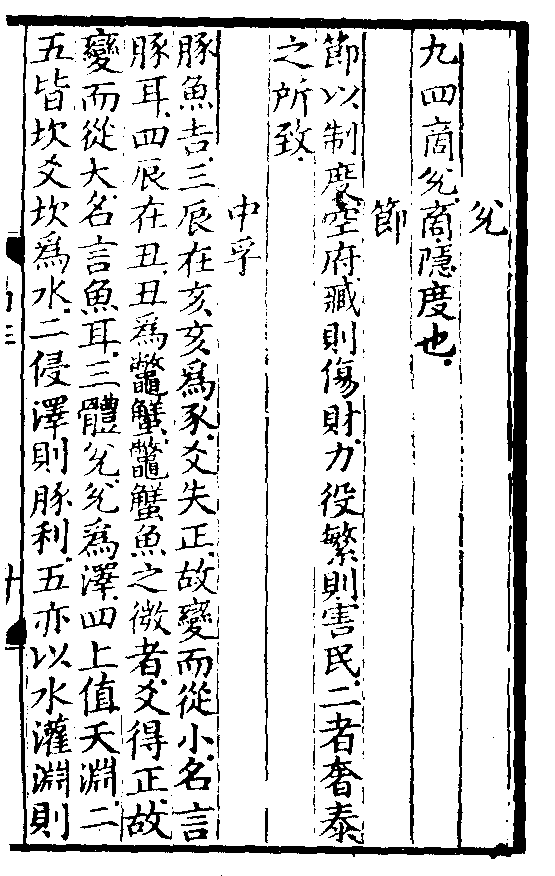 兌
九四商兌.商.隱度也.
節
節以制度.空府臧則傷財.力役繁則害民.二者奢泰
之所致.
中孚
豚魚吉.三辰在亥.亥爲豕.爻失正.故變而從小.名言
豚耳.四辰在丑.丑爲鼈蟹.鼈蟹魚之微者.爻得正.故
變而從大.名言魚耳.三體兌.兌爲澤.四上值天淵.二
五皆坎爻.坎爲水.二侵澤則豚利.五亦以水灌淵則